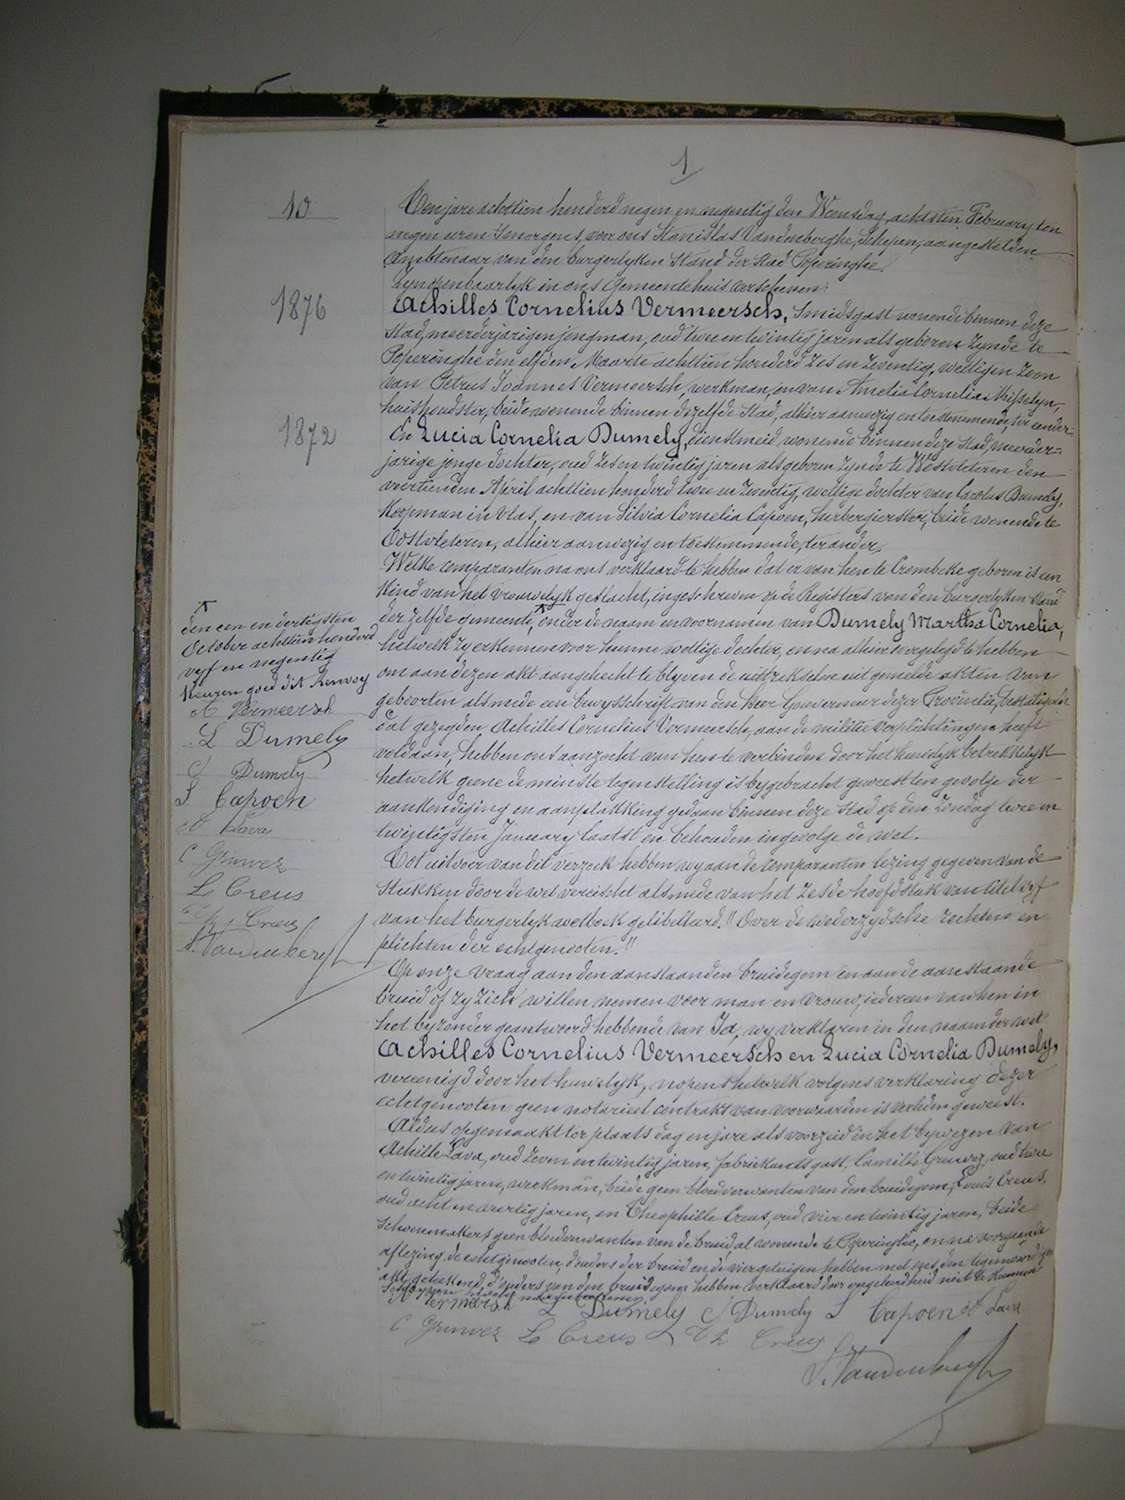 1
10
Ten jare achttien honderd negen en negentig den Woensdag achtsten February ten
negen uren 's morgens, voor ons Stanislas Vandenberghe, Schepen, aangestelden
Ambtenaar van den burgerlyken Stand der stad Poperinghe
Zyn openbaarlyk in ons Gemeentehuis verschenen:
1876
Achilles Cornelius Vermeersch, Smidsgast wonende binnen deze
Stad, meerderjarigen jongman, oud twee en twintig jaren als geboren zynde te
Poperinghe den elfden Maarte achttien honderd zes en zeventig, wettigen zoon
van Petrus Joannes Vermeersch, werkman, en van Amelia Cornelia
huishoudster, beide wonende binnen dezelfde Stad, alhier aanwezig en toestemmende, ter eender
1872
En Lucia Cornelia Dumely, dienstmeid, wonende binnen deze Stad, meerder-
jarige jonge dochter, oud zes en twintig jaren als geboren zynde te Westvleteren den
veertienden April achttien honderd twee en zeventig, wettige dochter van Carolus Dumely,
Koopman in vlas, en van Silvia Cornelia Capoen, herbergierster, beide wonende te
Oostvleteren, alhier aanwezig en toestemmende, ter ander,
Welke comparanten na ons verklaard te hebben dat er van hen te Crombeke geboren is een
Kind van het vrouwelyk geslacht, ingeschreven op de Registers van den burgerlyken Stand
der zelfde gemeente, onder de naam en voornamen van Dumely Martha Cornelia,
hetwelk zy erkennen voor hunne wettige dochter, en na alhier overgelegd te hebben
om aan dezen akt aangehecht te blyven de uittreksels uit gemelde akten van
geboorten alsmede een bewysschrift van den Heer Gouverneur dezer Provincie, bestatigende
dat gezegden Achilles Cornelius Vermeersch, aan de militie verplichtingen heeft
voldaan, hebben ons aanzocht van hen te verbinden door het huwelyk betrekkelyk
hetwelk geene de minste tegenstelling is bygebracht geweest ten gevolge der
aankondiging en aanplakking gedaan binnen deze Stad op den Zondag twee en
twintigsten January laatst en behouden ingevolge de wet.
Tot uitvoer van dit verzoek hebben wy aan de comparanten lezing gegeven van de
Stukken door de wet vereischt alsmede van het zesde hoofdstuk van titel vyf
van het burgerlyk wetboek getiteld " Over de wederzydsche rechten en
plichten der echtgenooten. "
Op onze vraag aan den aanstaanden bruidegom en aan de aanstaande
bruid of zy zich willen nemen voor man en vrouw, iedereen van hen in
het byzonder geantwoord hebbende van Ja, wy verklaren in den naam der wet
Achilles Cornelius Vermeersch en Lucia Cornelia Dumely,
vereenigd door het huwelyk, nopens hetwelk volgens verklaring dezer
echtgenooten geen notarieel contrakt van voorwaarden is verleden geweest.
Aldus opgemaakt ter plaats dag en jare als voorzeid in het bywezen van
Achille Lava, oud zeven en twintig jaren, fabriekantsgast, Camille Gruwez, oud twee
en twintig jaren, werkman, beide geen bloedverwanten van den bruidegom, Louis Creus,
oud acht en veertig jaren, en Theophille Creus, oud vier en twintig jaren, beide
Schoenmakers geen bloedverwanten van de bruid al wonende te Poperinghe, en na voorgaande
aflezing de echtgenooten, d'ouders der bruid en de vier getuigen hebben met ons den tegenwoordigen
akt geteekend, d'ouders van den bruidegom hebben verklaard door ongeleerdheid niet te kunnen
Vermeersch L Dumely C Dumely S Capoen A Lava
C Gruwez Ls Creus Th Creus
S. Vandenberghe
den een en dertigsten
October achttien honderd
vyf en negentig
Keuren goed dit Renvoy
A Vermeersch
L Dumely
C Dumely
S Capoen
A Lava
C Gruwez
Ls Creus
Th Creus
S. Vandenberghe